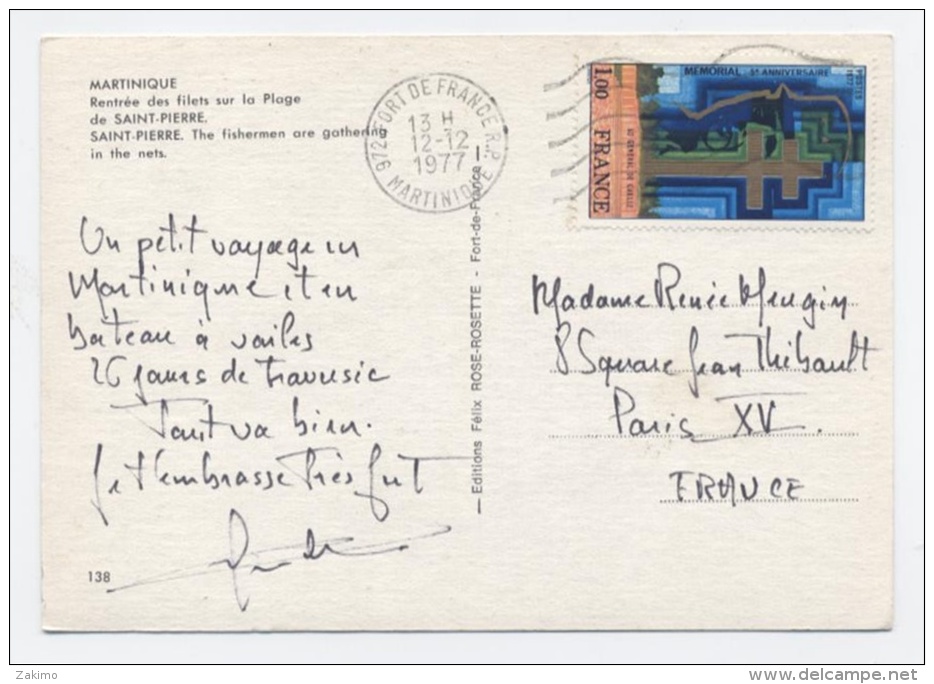 MARTINIQUE
Rentrée des filets sur la Plage
de SAINT-PIERRE.
SAINT-PIERRE. The fishermen are gathering
in the nets.
972 FORT DE FRANCE R.P.
13 H
12-12
1977
MARTINIQUE
MEMORIAL 5e ANNIVERSAIRE
POSTES
1977
1.00 FRANCE
DU GENERAL DE GAULLE
Un petit voyage en
Martinique et en
bateau à voiles
26 jours de traversée
Tout va bien.
Je t'embrasse très fort
— Editions Félix ROSE-ROSETTE - Fort-de-France —
Madame Renée Mengin
8 Square Jean Thibault
Paris XV.
FRANCE
138
Zakimo
www.delcampe.net